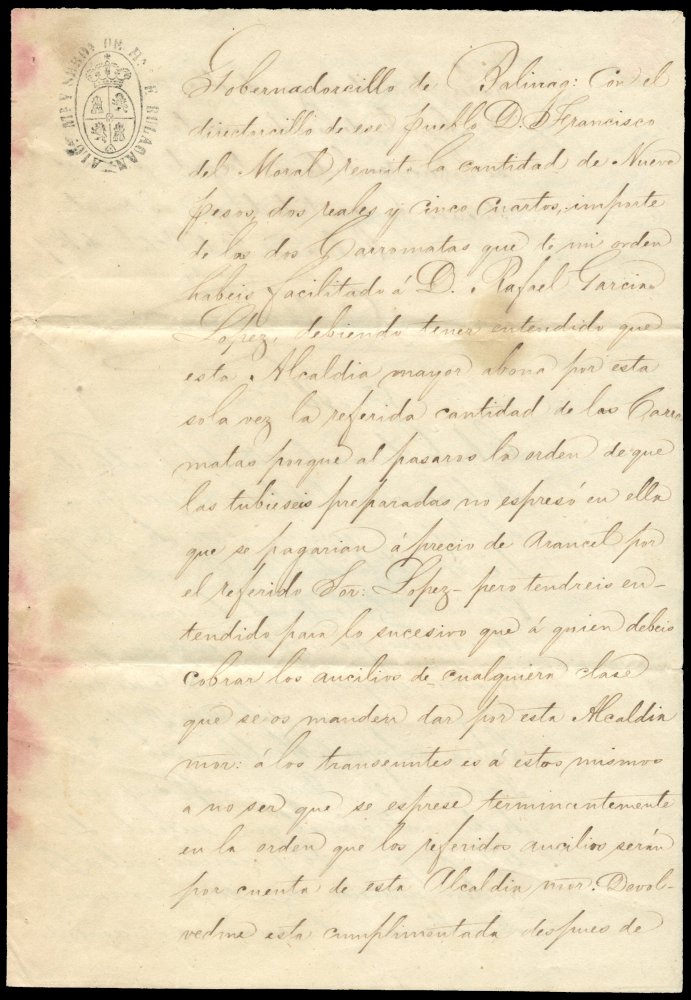 ALC.ª MR Y SUBDN DE Hª DE BULACAN
Gobernadorcillo de Balinag: Con el
directorcillo de ese pueblo D. Francisco
del Moral remito la cantidad de Nueve
pesos, dos reales y cinco cuartos, importe
de las dos Carromatas que de mi orden
habeis facilitado á D. Rafael Garcia
Lopez, debiendo tener entendido que
esta Alcaldia mayor abona por esta
sola vez la referida cantidad de las Carro
matas porque al pasaros la orden de que
las tubieseis preparadas no espresó en ella
que se pagarian á precio de Arancel por
el referido Sor: Lopez - pero tendreis en-
tendido para lo sucesivo que á quien debeis
cobrar los aucilios de cualquiera clase
que se os manden dar por esta Alcaldia
mor: á los transeuntes es á estos mismos
a no ser que se esprese terminantemente
en la orden que los referidos aucilios serán
por cuenta de esta Alcaldia mor. Devol-
vedme esta cumplimentada despues de